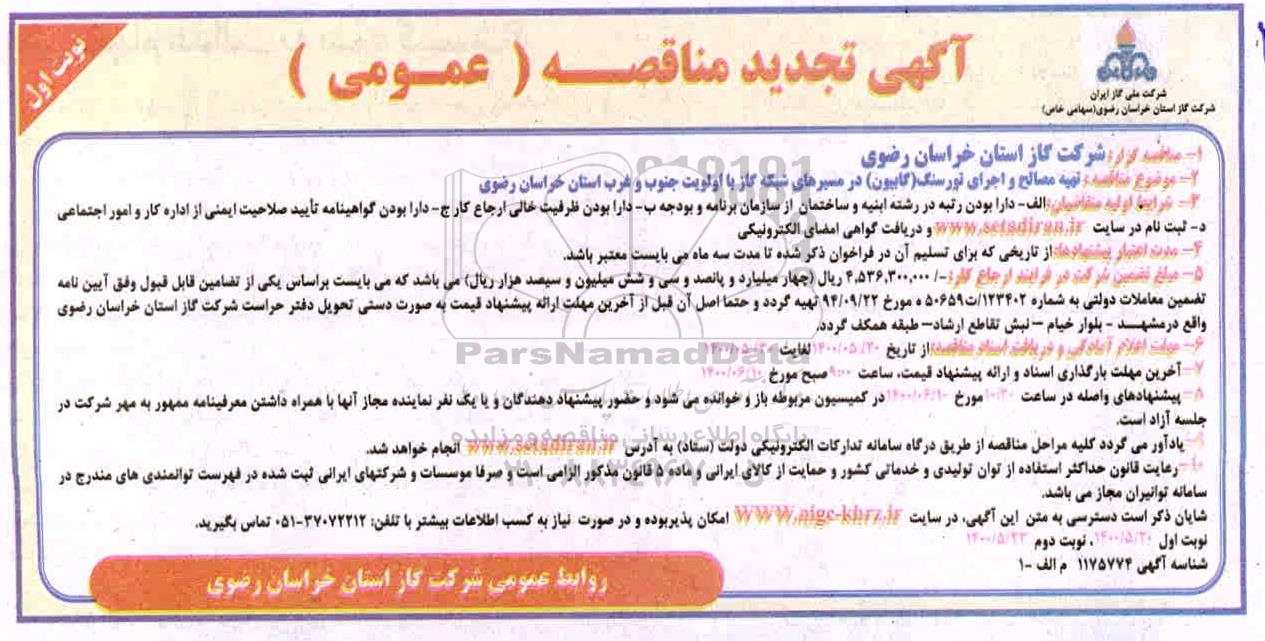 نوبت اول
آگهی تجدید مناقصه ( عمومی )
شرکت ملی گاز ایران
شرکت گاز استان خراسان رضوی(سهامی خاص)
۱- مناقصه گزار: شرکت گاز استان خراسان رضوی
۲- موضوع مناقصه: تهیه مصالح و اجرای تورسنگ(گابیون) در مسیرهای شبکه گاز با اولویت جنوب و غرب استان خراسان رضوی
۳- شرایط اولیه متقاضیان: الف- دارا بودن رتبه در رشته ابنیه و ساختمان از سازمان برنامه و بودجه ب- دارا بودن ظرفیت خالی ارجاع کار ج- دارا بودن گواهینامه تأیید صلاحیت ایمنی از اداره کار و امور اجتماعی
د- ثبت نام در سایت www.setadiran.ir و دریافت گواهی امضای الکترونیکی
۴- مدت اعتبار پیشنهادها: از تاریخی که برای تسلیم آن در فراخوان ذکر شده تا مدت سه ماه می بایست معتبر باشد.
۵- مبلغ تضمین شرکت در فرایند ارجاع کار: -/ ۴,۵۳۶,۳۰۰,۰۰۰ ریال (چهار میلیارد و پانصد و سی و شش میلیون و سیصد هزار ریال) می باشد که می بایست براساس یکی از تضامین قابل قبول وفق آیین نامه
تضمین معاملات دولتی به شماره ۱۲۳۴۰۲/ت۵۰۶۵۹ ه مورخ ۹۴/۰۹/۲۲ تهیه گردد و حتما اصل آن قبل از آخرین مهلت ارائه پیشنهاد قیمت به صورت دستی تحویل دفتر حراست شرکت گاز استان خراسان رضوی
واقع درمشهد - بلوار خیام – نبش تقاطع ارشاد– طبقه همکف گردد.
۶- مهلت اعلام آمادگی و دریافت اسناد مناقصه: از تاریخ ۱۴۰۰/۰۵/۲۰ لغایت ۱۴۰۰/۰۵/۳۰
۷- آخرین مهلت بارگذاری اسناد و ارائه پیشنهاد قیمت، ساعت ۹:۰۰ صبح مورخ ۱۴۰۰/۰۶/۱۰
۸- پیشنهادهای واصله در ساعت ۱۰:۳۰ مورخ ۱۴۰۰/۰۶/۱۰ در کمیسیون مربوطه باز و خوانده می شود و حضور پیشنهاد دهندگان و یا یک نفر نماینده مجاز آنها با همراه داشتن معرفینامه ممهور به مهر شرکت در
جلسه آزاد است.
۹- یادآور می گردد کلیه مراحل مناقصه از طریق درگاه سامانه تدارکات الکترونیکی دولت (ستاد) به آدرس www.setadiran.ir انجام خواهد شد.
۱۰- رعایت قانون حداکثر استفاده از توان تولیدی و خدماتی کشور و حمایت از کالای ایرانی و ماده ۵ قانون مذکور الزامی است و صرفا موسسات و شرکتهای ایرانی ثبت شده در فهرست توانمندی های مندرج در
سامانه توانیران مجاز می باشد.
شایان ذکر است دسترسی به متن این آگهی، در سایت WWW.nigc-khrz.ir امکان پذیربوده و در صورت نیاز به کسب اطلاعات بیشتر با تلفن: ۳۷۰۷۲۲۱۲-۰۵۱ تماس بگیرید.
نوبت اول ۱۴۰۰/۵/۲۰، نوبت دوم ۱۴۰۰/۵/۲۳
شناسه آگهی ۱۱۷۵۷۷۴ م الف -۱
روابط عمومی شرکت گاز استان خراسان رضوی
ParsNamadData
پایگاه اطلاع رسانی مناقصه و مزایده